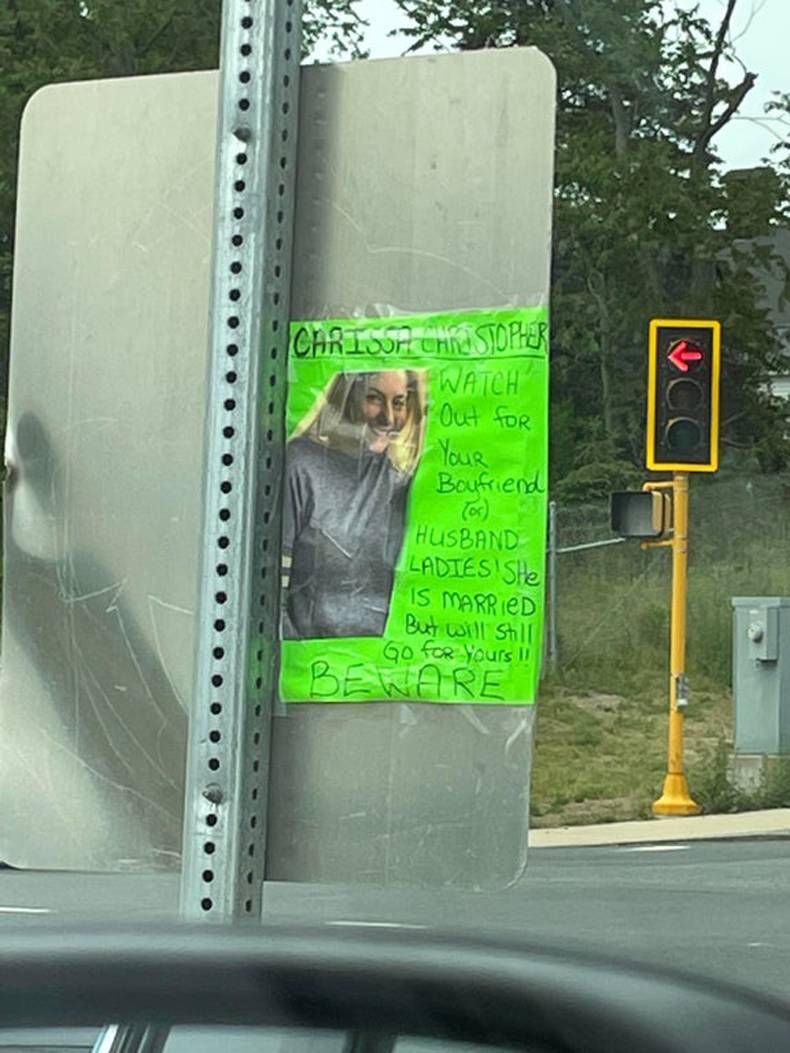 CARISSA CHRISTOPHER
WATCH
Out for
Your
Boyfriend
(or)
HUSBAND
LADIES! SHe
IS MARRieD
But will still
Go for Yours!!
BEWARE